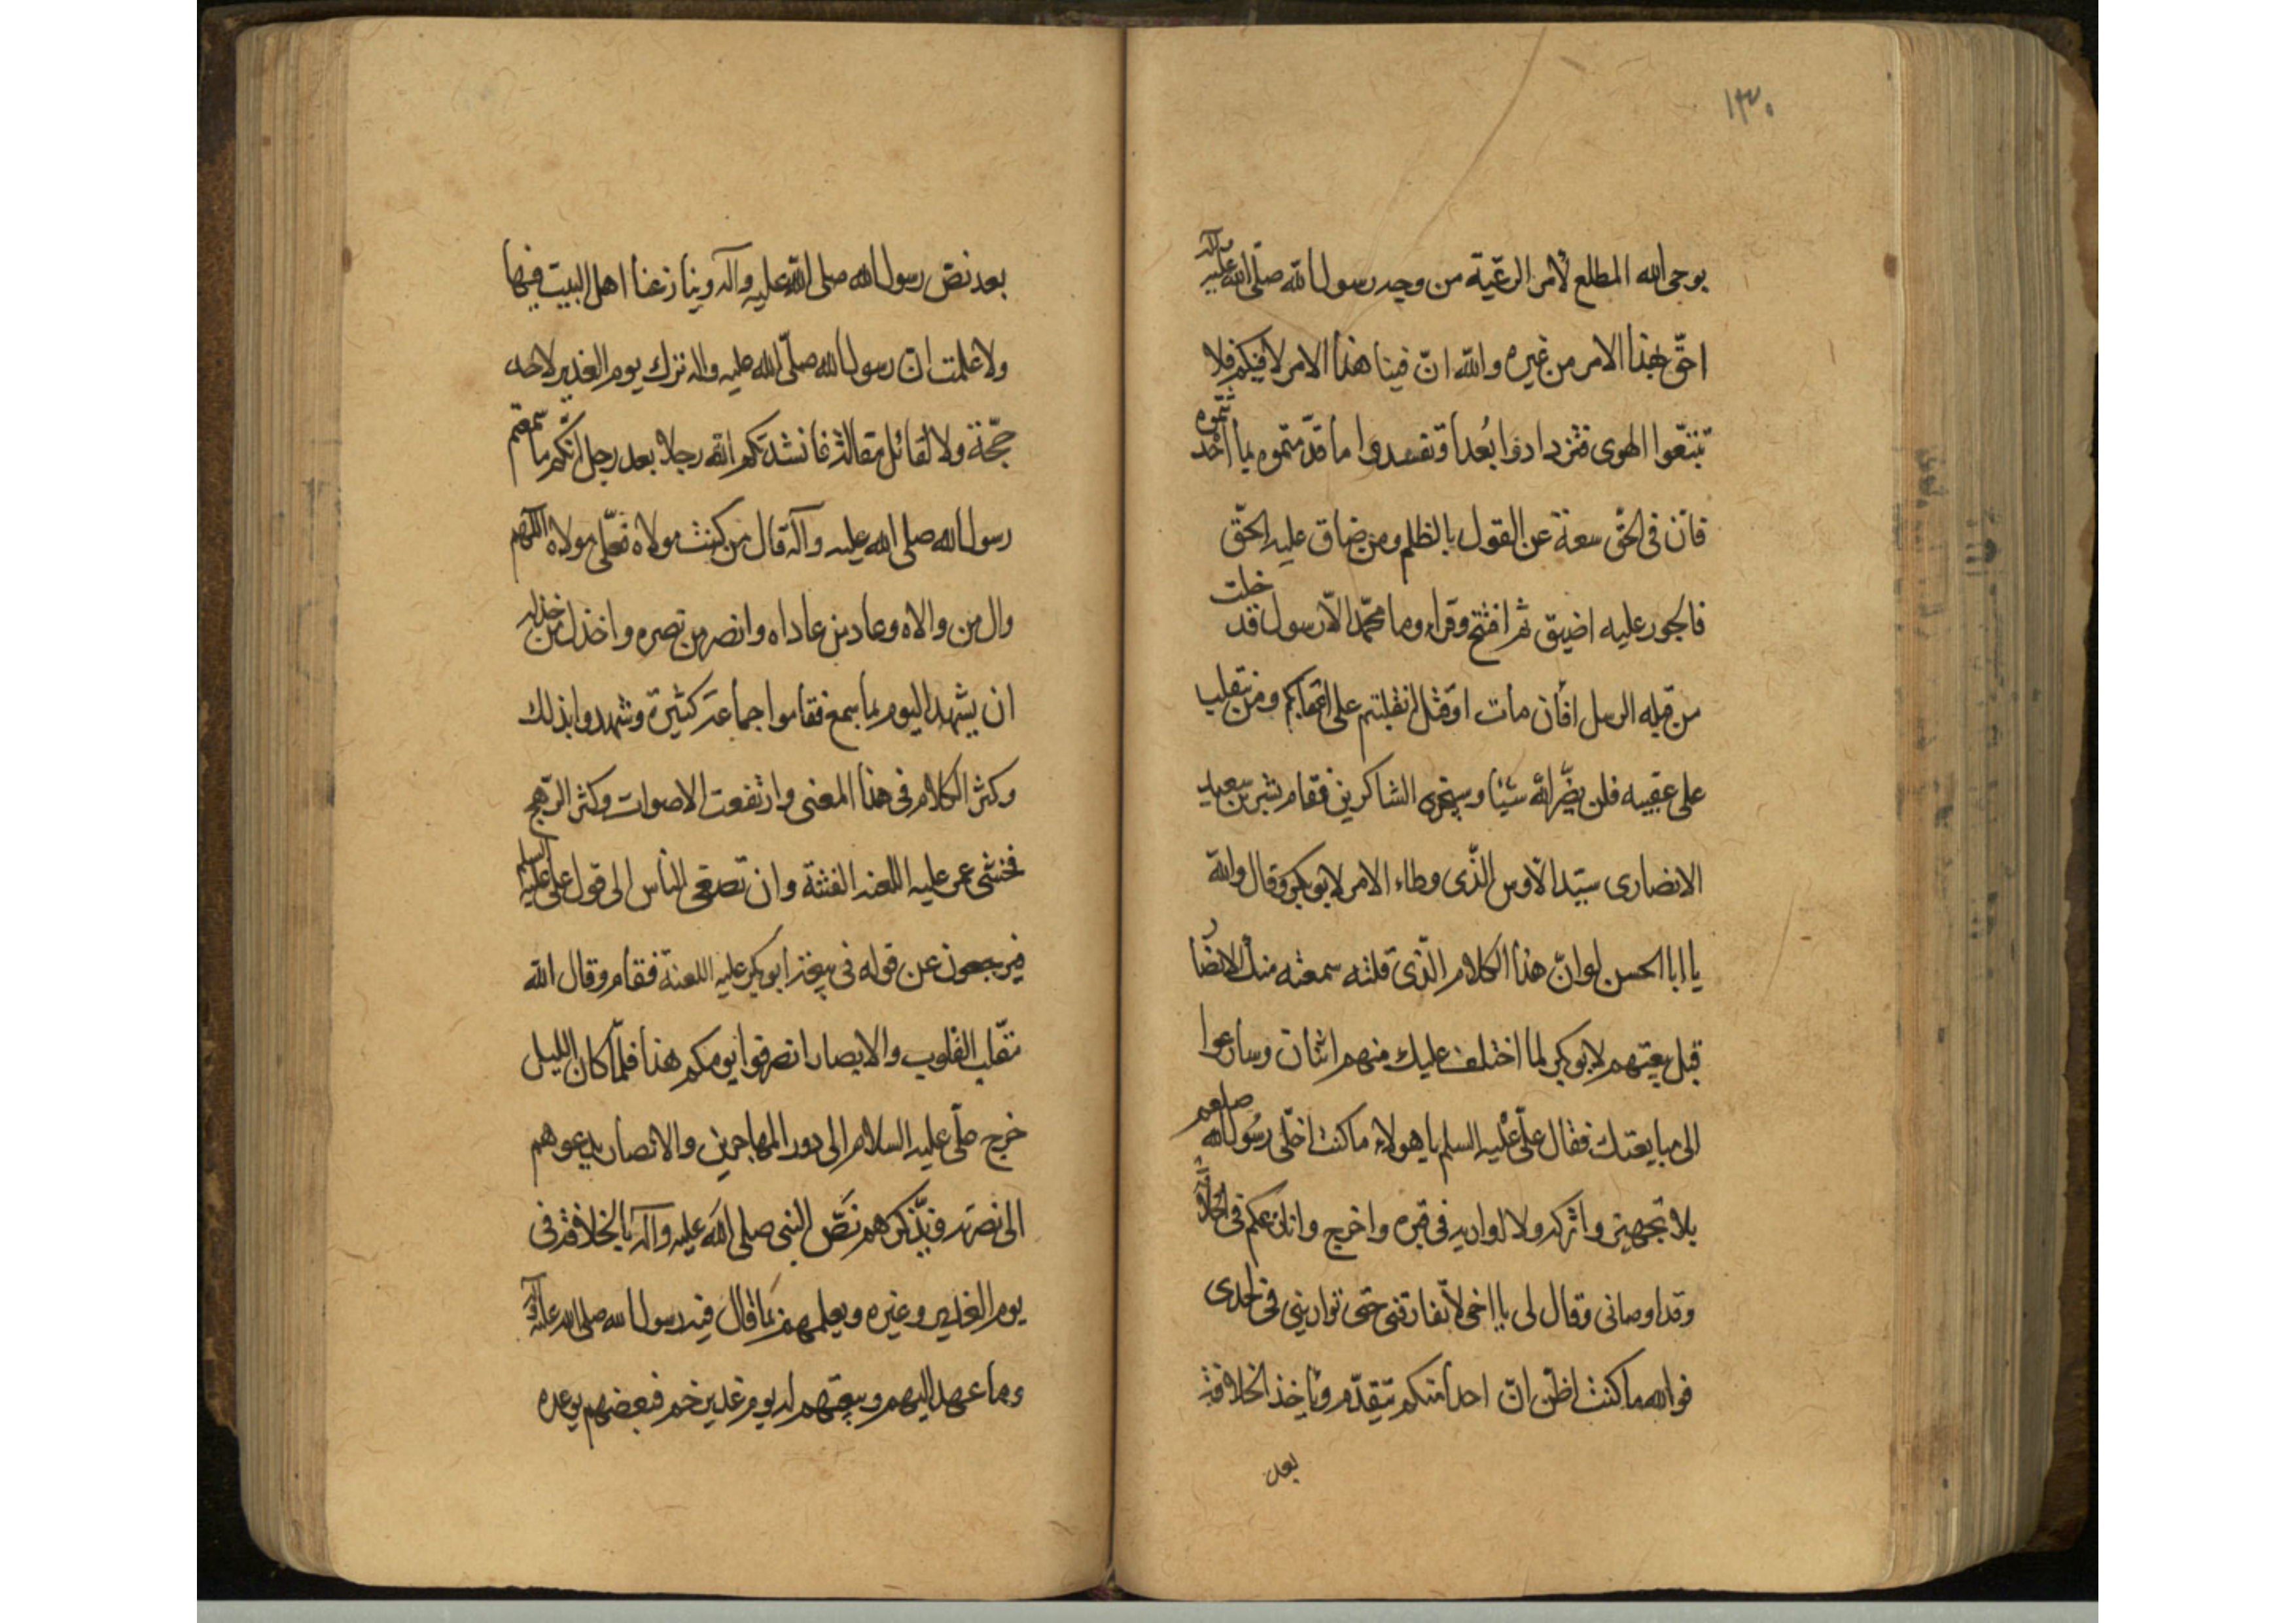 ١٣٠
بوحى الله المطلع لأمر الرعية من وحيد رسول الله صلى الله عليه وآله
احق بهذا الامر من غيره والله ان فينا هذا الامر لا فيكم فلا
تتبعوا الهوى فتزدادوا بُعداً وتفسدوا ما قدمتموه بما احدثتموه
فان فى الحق سعة عن القول بالظلم ومن ضاق عليه الحق
فالجور عليه اضيق ثم افتتح وقراء وما محمد الا رسول قد خلت
من قبله الرسل أفان مات او قتل انقلبتم على اعقابكم ومن ينقلب
على عقبيه فلن يضر الله شيئا وسيجزى الشاكرين فقام بشر بن سعيد
الانصارى سيد الاوس الذى وطاء الامر لابوبكر وقال والله
يا ابا الحسن لو ان هذا الكلام الذى قلته سمعته منك الانصار
قبل بيعتهم لابوبكر لما اختلف عليك منهم اثنان وسارعوا
الى مبايعتك فقال على عليه السلم يا هولاء ما كنت اخلى رسول الله صلعم
بلا تجهيز واتركه ولا اواريه فى قبره واخرج وانازعكم فى الخلافة
وقد اوصانى وقال لى يا اخى لا تفارقنى حتى توارينى فى لحدى
فوالله ما كنت اظن ان احدا منكم يتقدم ويأخذ الخلافة
بعد
بعد نص رسول الله صلى الله عليه وآله وينازعنا اهل البيت فيها
ولا علمت ان رسول الله صلى الله عليه واله ترك يوم الغدير لاحد
حجة ولا لقائل مقالة فانشدتكم الله رجلا بعد رجل انكم ما سمعتم
رسول الله صلى الله عليه وآله قال من كنت مولاه فعلى مولاه اللهم
وال من والاه وعاد من عاداه وانصر من نصره واخذل من خذله
ان يشهد اليوم بما سمع فقاموا جماعة كثيرة وشهدوا بذلك
وكثر الكلام فى هذا المعنى وارتفعت الاصوات وكثر الرهج
فخشى عمر عليه اللعنه الفتنة وان تصغى الناس الى قول على عليه السلم
فيرجعون عن قوله فى بيعة ابوبكر عليه اللعنة فقام وقال الله
مقلب القلوب والابصار انصرفوا يومكم هذا فلما كان الليل
خرج على عليه السلام الى دور المهاجرين والانصار يدعوهم
الى نصرته ويذكرهم نص النبى صلى الله عليه وآله بالخلافة فى
يوم الغدير وغيره ويعلمهم بما قال فيه رسول الله صلى الله عليه وآله
وما عهد اليهم وبيعتهم له يوم غدير خم فبعضهم يوعده